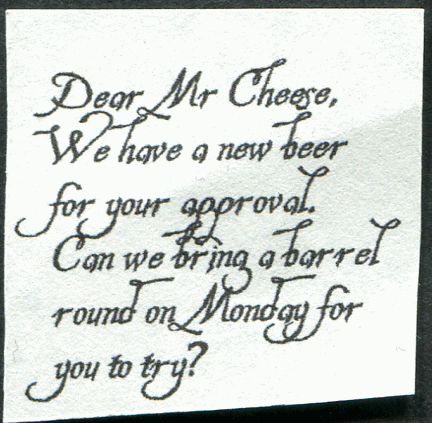 Dear Mr Cheese,
We have a new beer
for your approval.
Can we bring a barrel
round on Monday for
you to try?